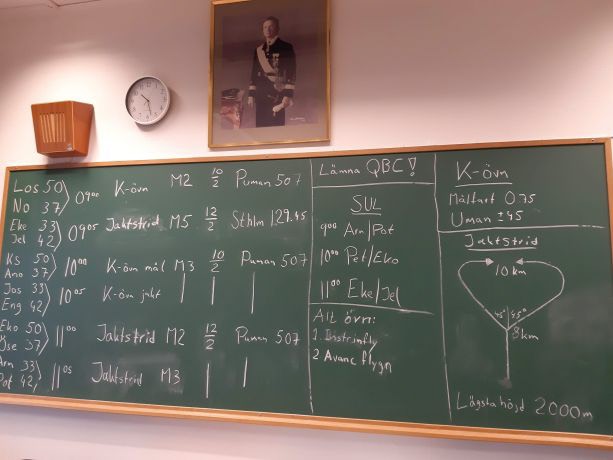 Los 50
No 37
0900 K-övn M2 10/2 Puman 507
Eke 33
Jel 42
0905 Jaktstrid M5 12/2 Sthlm 129.45
Ks 50
Ano 37
1000 K-övn mål M3 10/2 Puman 507
Jos 33
Eng 42
1005 K-övn jakt | | |
Eko 50
Öse 37
1100 Jaktstrid M2 12/2 Puman 507
Arn 33
Pot 42
1105 Jaktstrid M3 | |
Lämna QBC!
SUL
900 Arn/Pot
1000 Pet/Eko
1100 Eke/Jel
Alt övn:
1. Instrumfly
2 Avanc flygn
K-övn
Målfart 0.75
Uman ±45
Jaktstrid
10 km
45° 45°
8km
Lägsta höjd 2000m